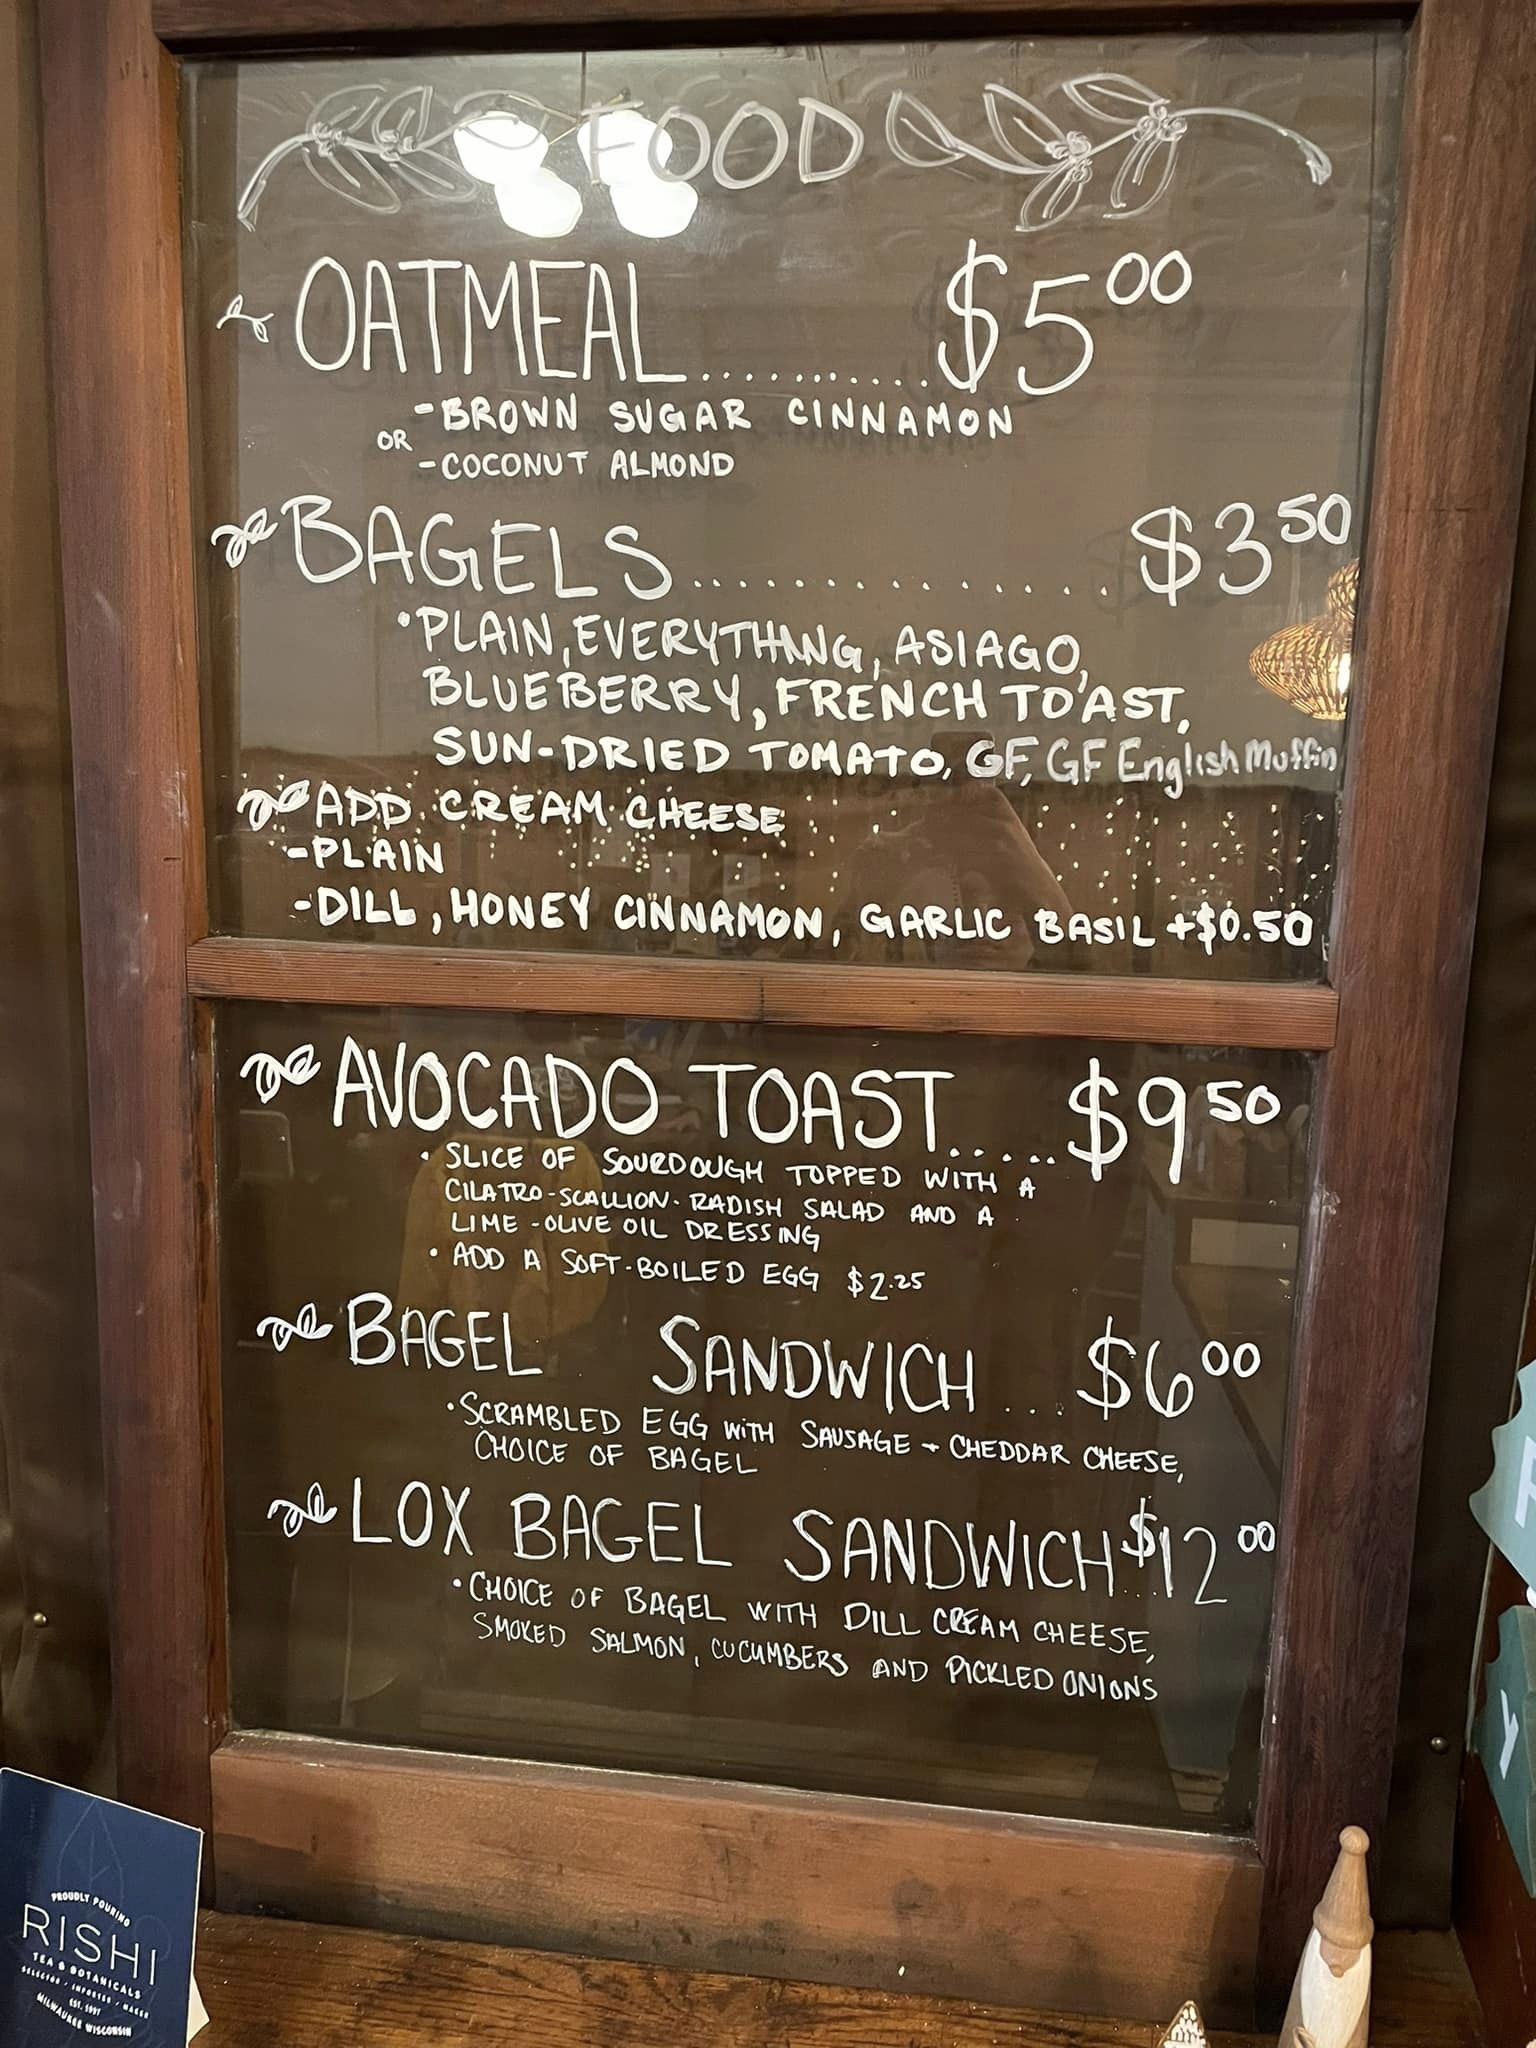 FOOD
OATMEAL..........$5.00
- BROWN SUGAR CINNAMON
OR
- COCONUT ALMOND
BAGELS...............$3.50
• PLAIN, EVERYTHING, ASIAGO,
BLUEBERRY, FRENCH TOAST,
SUN-DRIED TOMATO, GF, GF English Muffin
ADD CREAM CHEESE
- PLAIN
- DILL, HONEY CINNAMON, GARLIC BASIL +$0.50
AVOCADO TOAST.....$9.50
• SLICE OF SOURDOUGH TOPPED WITH A
CILATRO-SCALLION-RADISH SALAD AND A
LIME-OLIVE OIL DRESSING
• ADD A SOFT-BOILED EGG $2.25
BAGEL SANDWICH...$6.00
• SCRAMBLED EGG WITH SAUSAGE + CHEDDAR CHEESE,
CHOICE OF BAGEL
LOX BAGEL SANDWICH..$12.00
• CHOICE OF BAGEL WITH DILL CREAM CHEESE,
SMOKED SALMON, CUCUMBERS AND PICKLED ONIONS
PROUDLY POURING
RISHI
TEA & BOTANICALS
EST. 1997
MILWAUKEE WISCONSIN